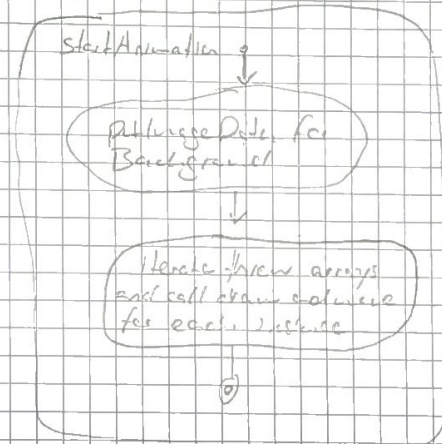 startAnimation
putImageData for
Background
iterate threw arrays
and call draw
for each